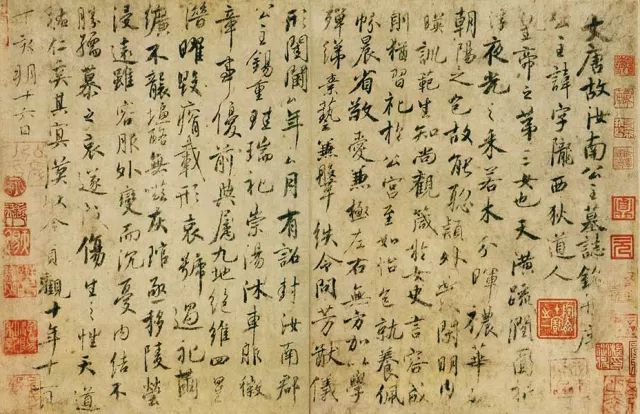 大唐故汝南公主墓誌銘并序
公主諱字隴西狄道人
皇帝之第三女也天潢疏潤圓折
浮夜光之采若木分暉穠華
朝陽之色故能聡穎外發閑明內
暎訓範生知尚觀箴於女史言容成
則猶習礼於公宮至如怡色就養佩
帉晨省敬愛兼極左右無方加以學
殫綈素藝兼鞶紩令問芳猷儀
形閨閫厶年厶月有詔封汝南郡
公主錫重珪瑞礼崇湯沐車服徽
章事優前典屬九地絕維四星
潛曜毀瘠載形哀號過礼繭
纊不襲塩酪無嗞灰琯亟移陵塋
浸遠雖容服外變而沉憂內結不
勝孺慕之哀遂以傷生之性天道
祐仁奚其冥漠以今貞觀十年十一
丁亥朔十六日